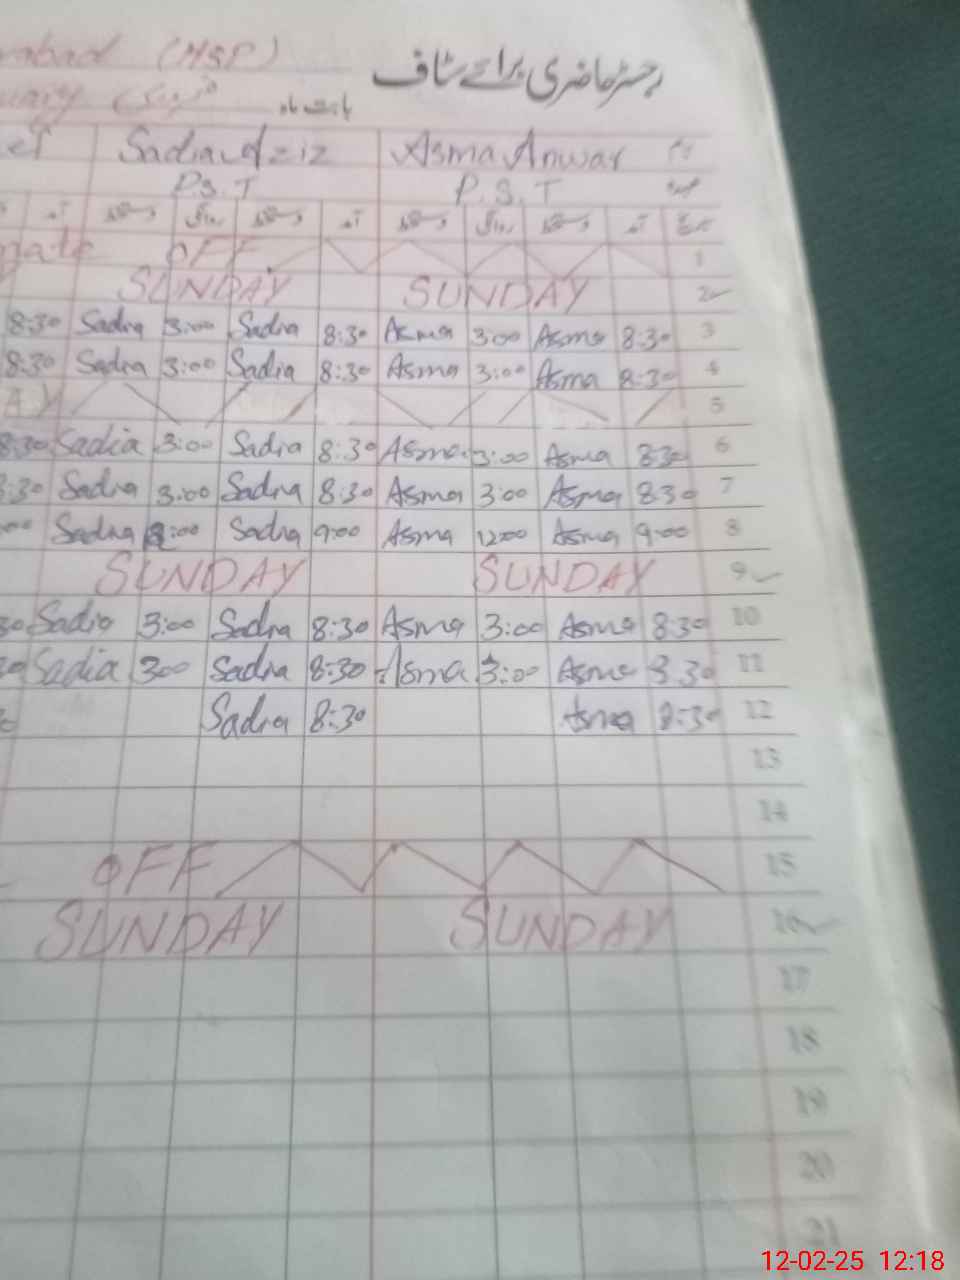 (HSP) رجسٹر حاضری برائے سٹاف
بابت ماہ
Sadia Aziz Asma Anwar نام
P.S.T P.S.T عہدہ
آمد دستخط روانگی دستخط آمد دستخط روانگی دستخط آمد تاریخ
OFF 1
SUNDAY SUNDAY 2
8:30 Sadia 3:00 Sadia 8:30 Asma 3:00 Asma 8:30 3
8:30 Sadia 3:00 Sadia 8:30 Asma 3:00 Asma 8:30 4
5
8:30 Sadia 3:00 Sadia 8:30 Asma 3:00 Asma 8:30 6
:30 Sadia 3:00 Sadia 8:30 Asma 3:00 Asma 8:30 7
:00 Sadia :00 Sadia 9:00 Asma 12:00 Asma 9:00 8
SUNDAY SUNDAY 9
30 Sadia 3:00 Sadia 8:30 Asma 3:00 Asma 8:30 10
30 Sadia 3:00 Sadia 8:30 Asma 3:00 Asma 8:30 11
Sadia 8:30 Asma 8:30 12
13
14
OFF 15
SUNDAY SUNDAY 16
17
18
19
20
21
12-02-25 12:18